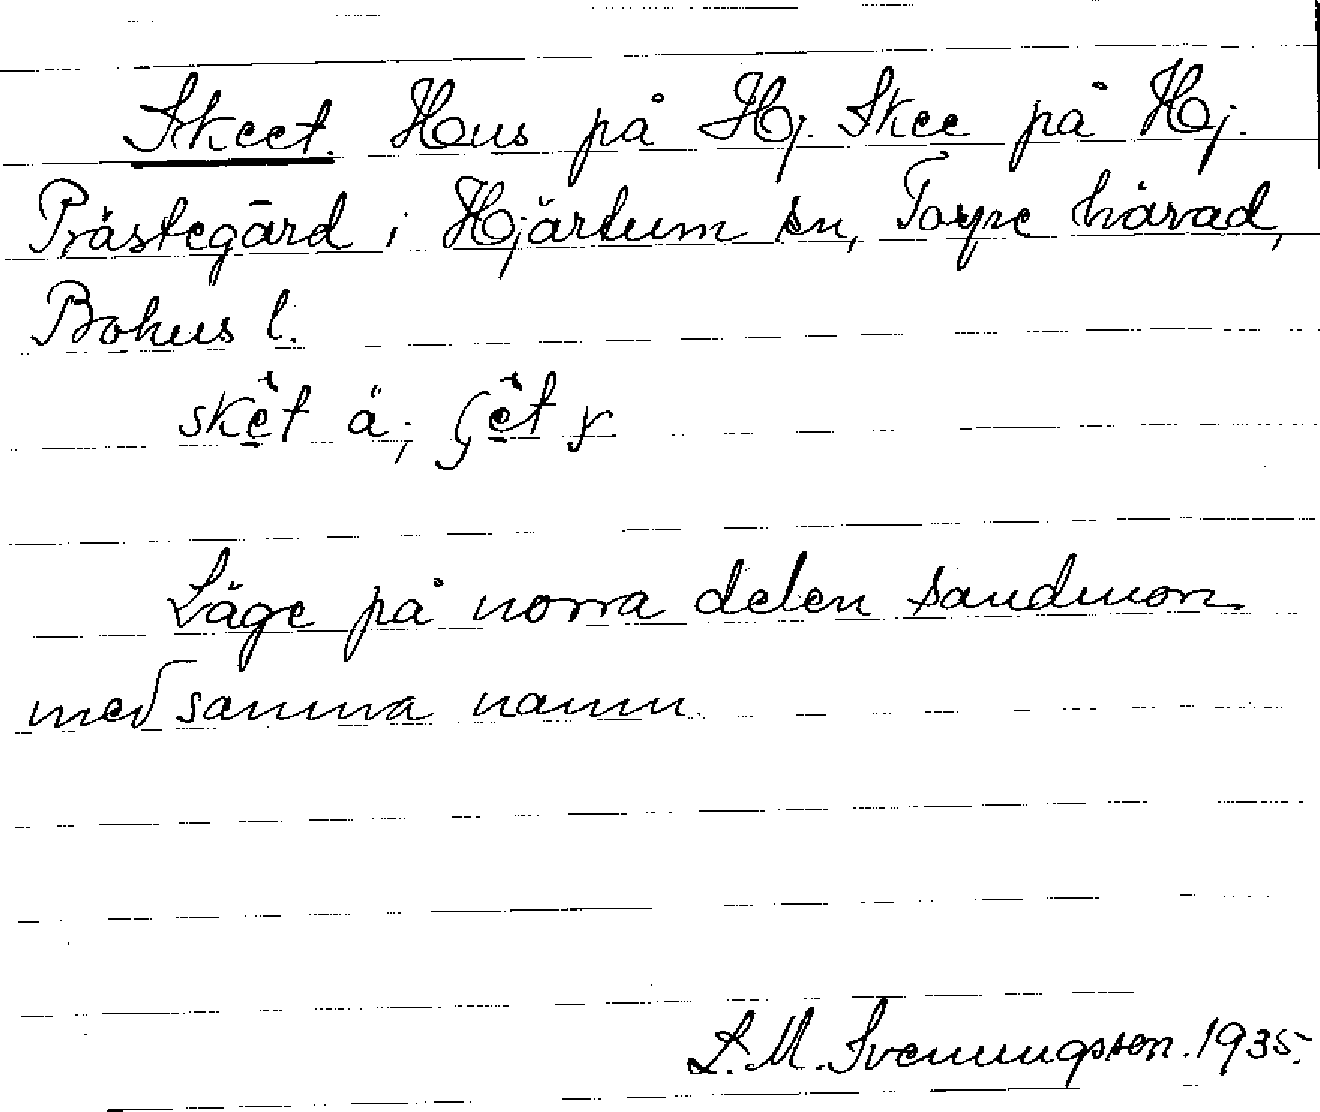 Skeet. Hus på Hj. Skee på Hj.
Prästegård i Hjärtum sn, Torpe härad,
Bohus l.
skèt ä; ʃèt y
Läge på norra delen sandmon
med samma namn.
L. M. Svenungsson. 1935.